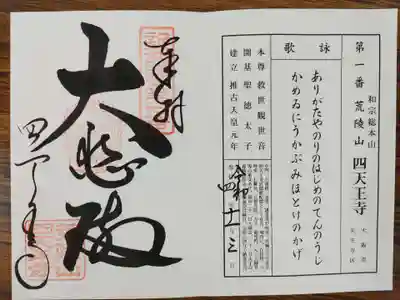 第一番 荒陵山
和宗総本山
四天王寺
大阪市
天王寺区
詠歌
ありがたやのりのはじめのてんのうじ
かめゐにうかぶみほとけのかげ
本尊 救世観世音
開基 聖徳太子
建立 推古天皇元年
令和 四 十一 三
奉拝
大悲殿
四天王寺